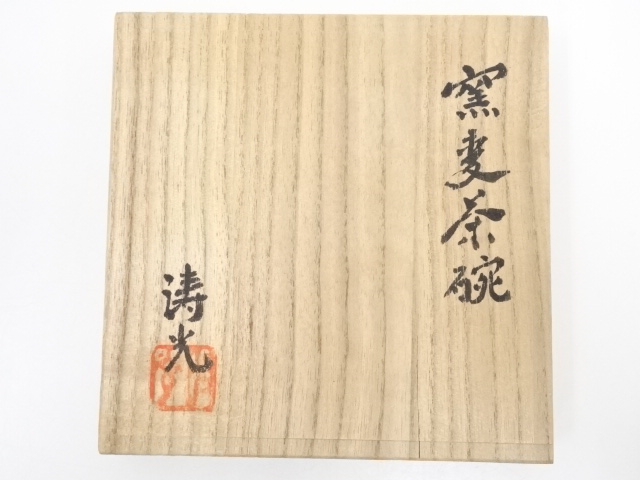 窯変茶碗
涛光